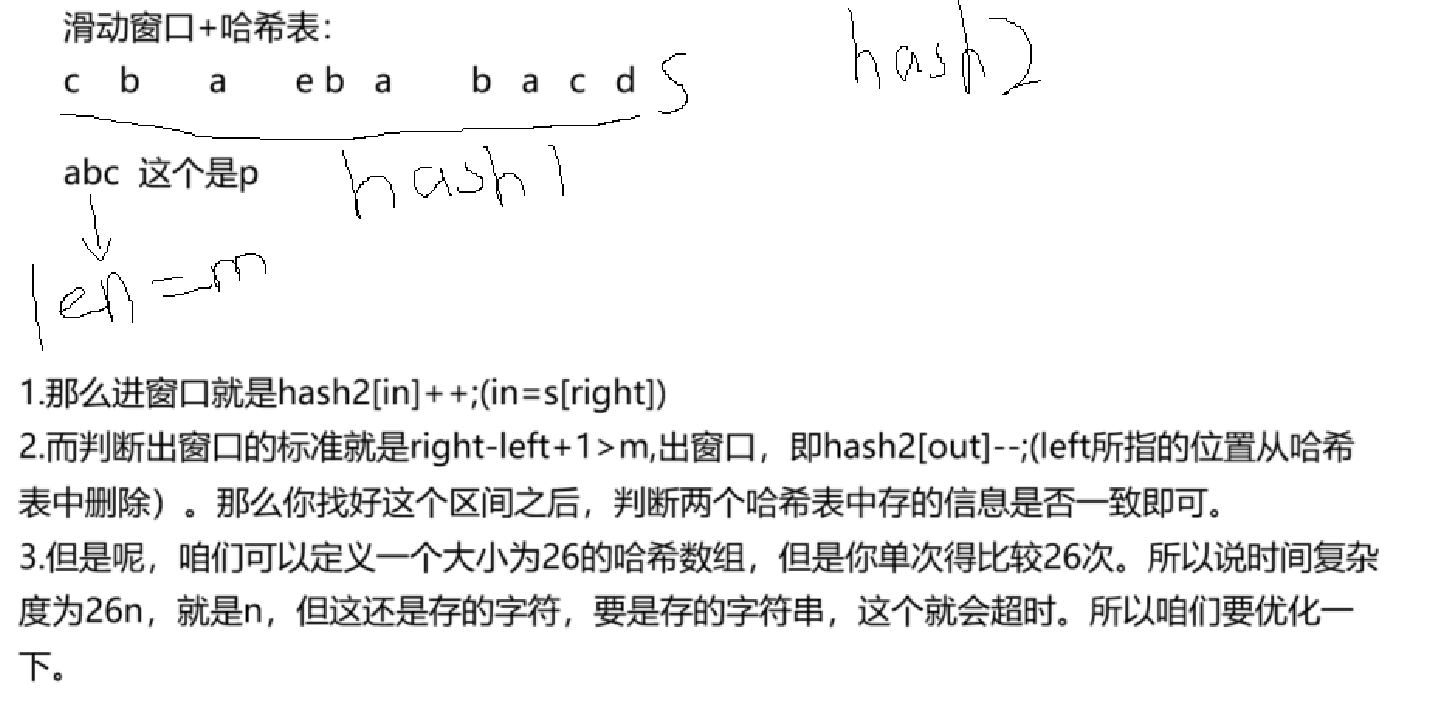 滑动窗口+哈希表：
hash2
c b a e b a b a c d S
abc 这个是p
hash1
len=m
1.那么进窗口就是hash2[in]++;(in=s[right])
2.而判断出窗口的标准就是right-left+1>m,出窗口，即hash2[out]--;(left所指的位置从哈希
表中删除）。那么你找好这个区间之后，判断两个哈希表中存的信息是否一致即可。
3.但是呢，咱们可以定义一个大小为26的哈希数组，但是你单次得比较26次。所以说时间复杂
度为26n，就是n，但这还是存的字符，要是存的字符串，这个就会超时。所以咱们要优化一
下。